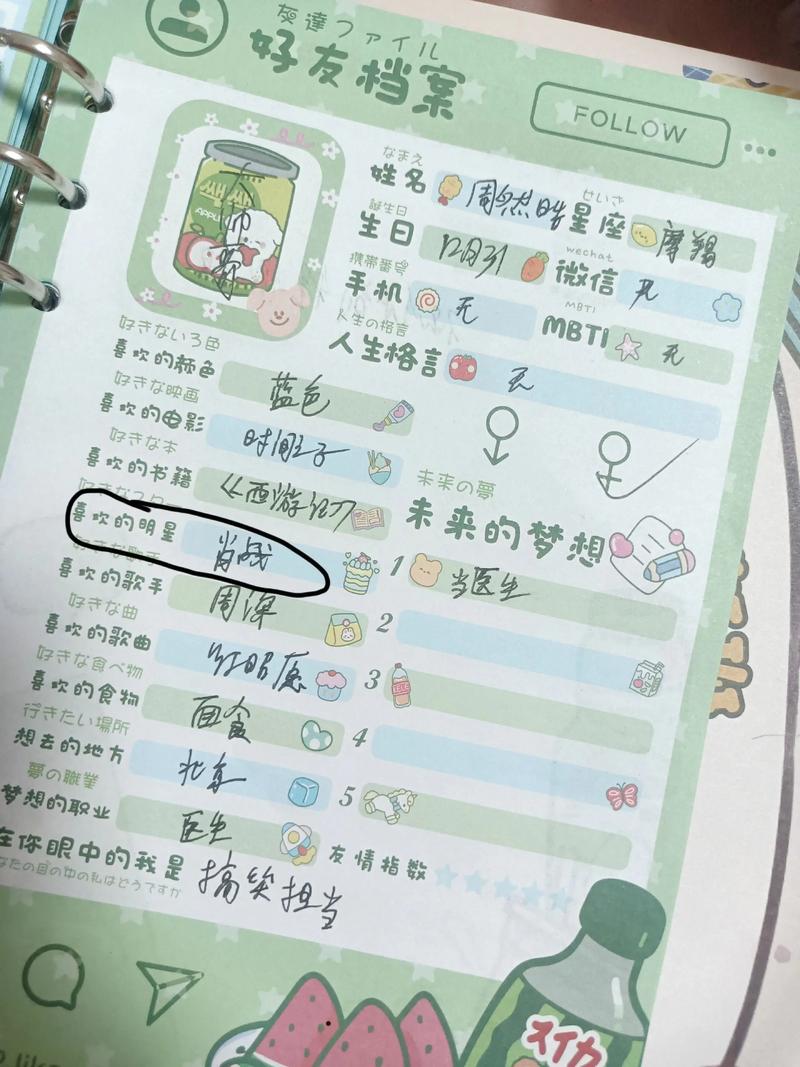 友達ファイル
好友档案
FOLLOW
なまえ
姓名 周然皓
せいざ
星座 摩羯
誕生日
生日 12月31
wechat
微信 无
携帯番号
手机 无
MBTI
MBTI 无
人生の格言
人生格言 无
大帅哥
쌕쌕
APPL
好きないろ色
喜欢的颜色 蓝色
好きな映画
喜欢的电影 时间之子
好きな本
喜欢的书籍 《西游记》
喜欢的明星 肖战
喜欢的歌手 周深
好きな曲
喜欢的歌曲 红昭愿
好きな食べ物
喜欢的食物 面食
行きたい場所
想去的地方 北京
夢の職業
梦想的职业 医生
在你眼中的我是 搞笑担当
なたの目の中の私はどうですか
未来の夢
未来的梦想
1 当医生
2
3
4
5
友情指数
スイカ
like